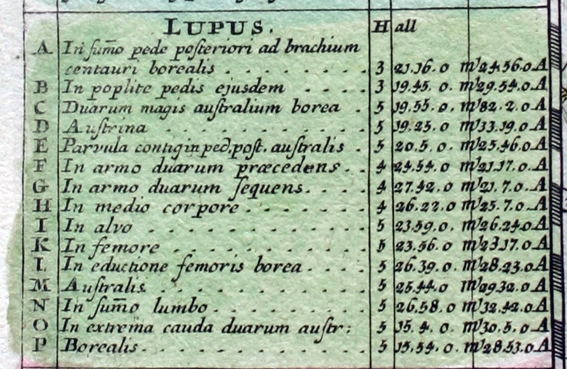 LUPUS. Hall
A In sum̃o pede posteriori ad brachium
centauri borealis 3 21.16.0 ♏ 24.56.0 A
B In poplite pedis ejusdem 3 19.45.0 ♏ 29.54.0 A
C Duarum magis australium borea 5 19.55.0 ♏ 82.2.0 A
D Austrina 5 19.25.0 ♏ 33.19.0 A
E Parvula contig in ped. post. australis 5 20.5.0 ♏ 25.46.0 A
F In armo duarum præcedens 4 24.54.0 ♏ 21.17.0 A
G In armo duarum sequens 4 27.42.0 ♏ 21.7.0 A
H In medio corpore 4 26.22.0 ♏ 25.7.0 A
I In alvo 5 23.59.0 ♏ 26.24.0 A
K In femore 5 23.56.0 ♏ 23.17.0 A
L In eductione femoris borea 5 26.39.0 ♏ 28.23.0 A
M Australis 5 25.44.0 ♏ 29.32.0 A
N In sum̃o lumbo 5 26.58.0 ♏ 32.42.0 A
O In extrema cauda duarum austr: 5 15.4.0 ♏ 30.5.0 A
P Borealis 5 15.54.0 ♏ 28.53.0 A